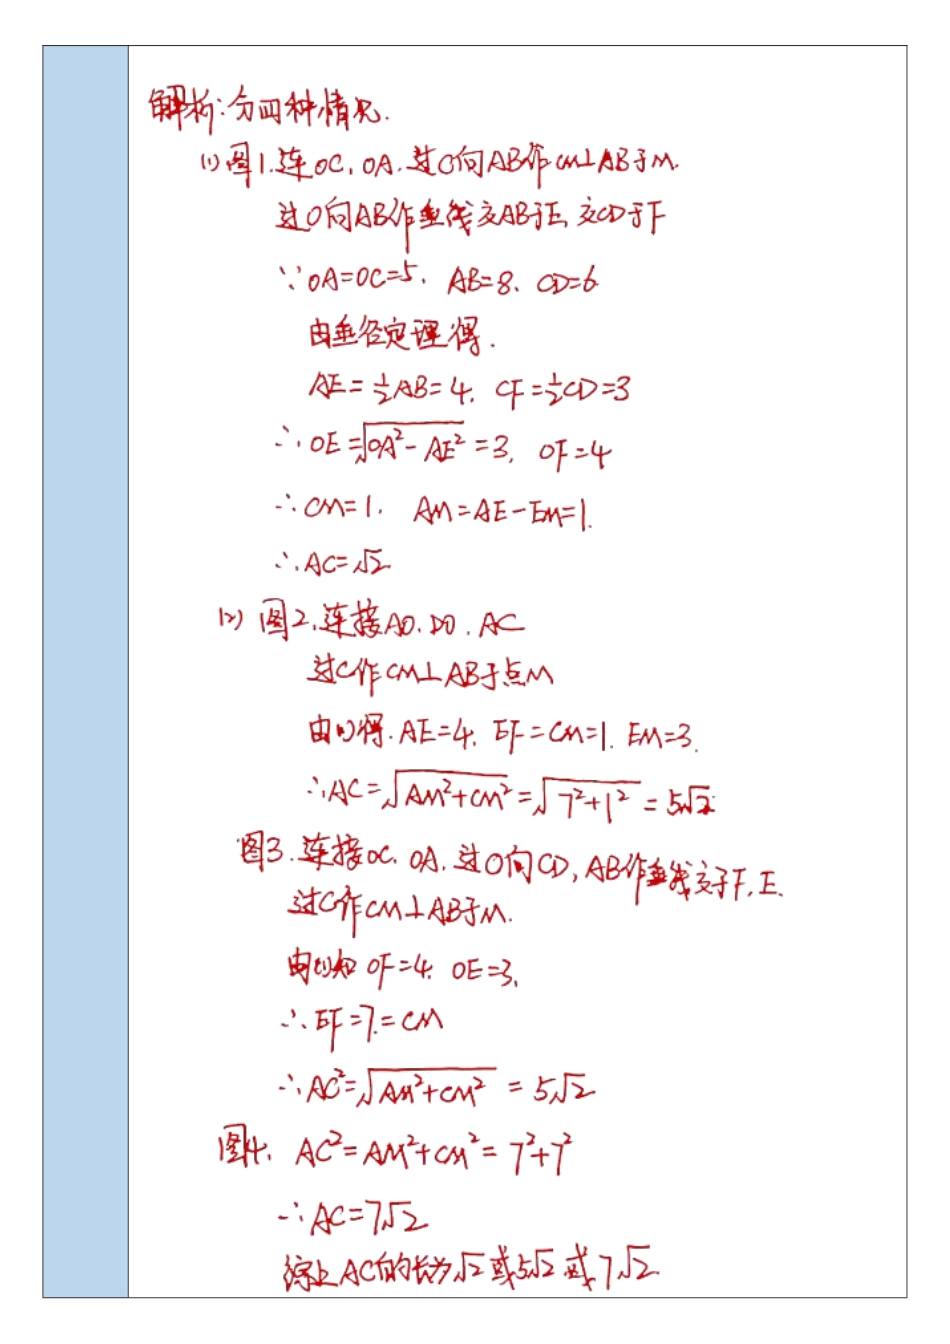 解析:分四种情况.
(1)图1.连OC,OA.过C向AB作CM⊥AB于M.
过O向AB作垂线交AB于E,交CD于F
∵OA=OC=5, AB=8, CD=6
由垂径定理得.
AE=½AB=4, CF=½CD=3
∴OE=√(OA²-AE²)=3, OF=4
∴CM=1, AM=AE-EM=1.
∴AC=√2
(2)图2,连接AO,DO,AC
过C作CM⊥AB于点M
由(1)得.AE=4, EF=CM=1. EM=3.
∴AC=√(AM²+CM²)=√(7²+1²)=5√2
图3.连接OC,OA,过O向CD,AB作垂线交于F,E.
过C作CM⊥AB于M.
由(1)知 OF=4, OE=3,
∴EF=7=CM
∴AC²=√(AM²+CM²)=5√2
图4, AC²=AM²+CM²=7²+7²
∴AC=7√2
综上AC的长为√2或5√2或7√2.